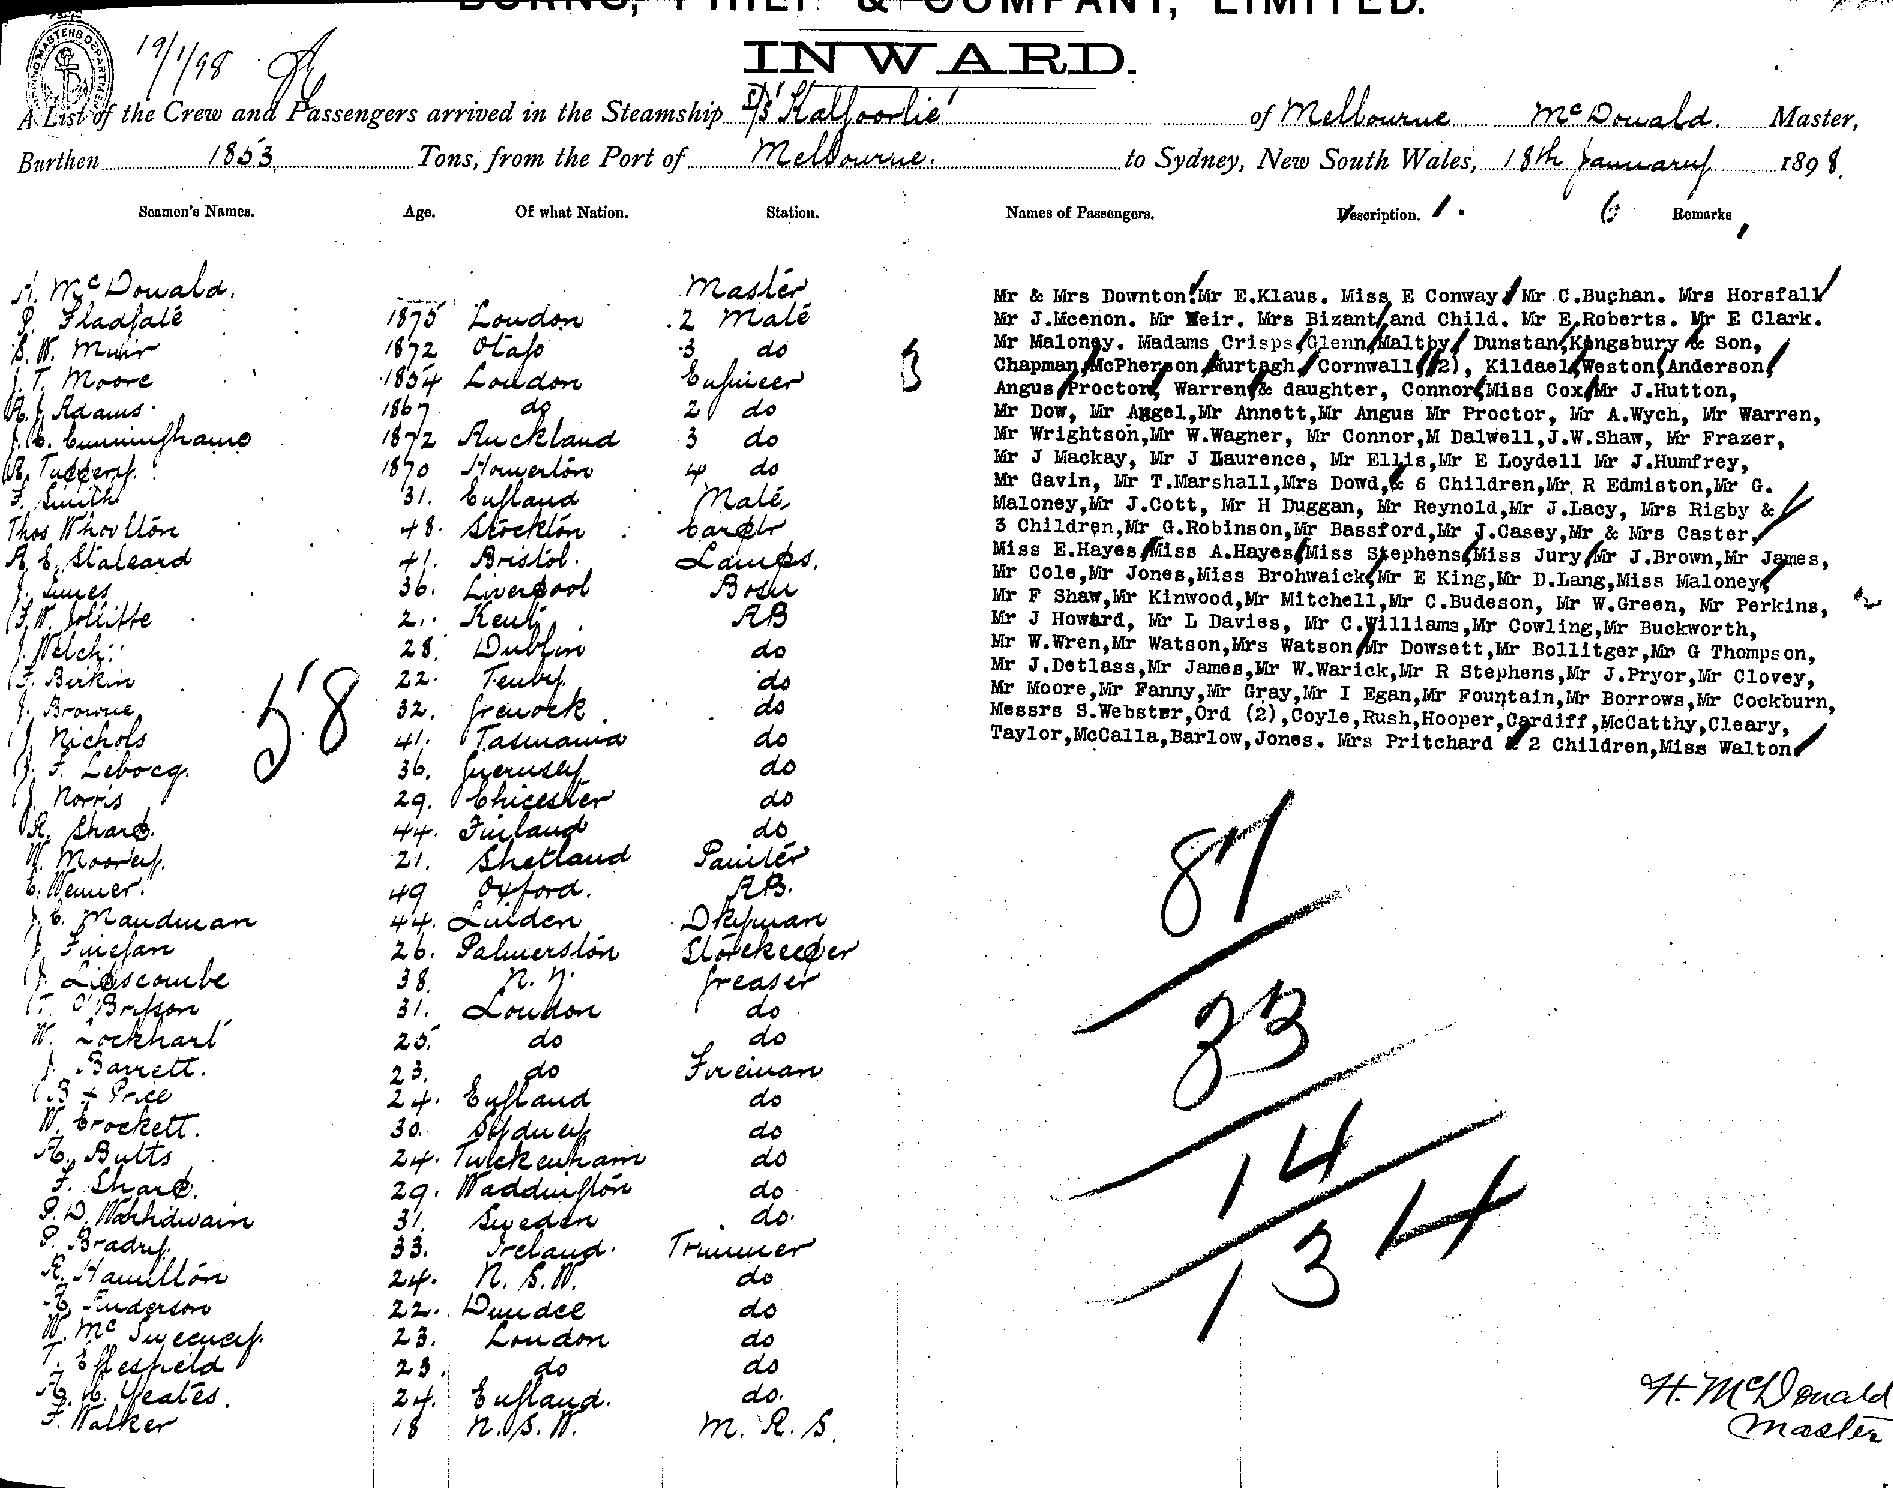 BURNS, PHILP & COMPANY, LIMITED.
INWARD.
19/1/98
A List of the Crew and Passengers arrived in the Steamship S/S 'Kalgoorlie' of Melbourne McDonald. Master,
Burthen 1853 Tons, from the Port of Melbourne. to Sydney, New South Wales, 18th January 1898.
Seamen's Names. Age. Of what Nation. Station. Names of Passengers. Description. 1. 6 Remarks
McDonald. Master
1875 London 2 Mate
S. W. Muir 1872 Otago 3 do
J. T. Moore 1854 London Engineer
R. J. Adams. 1867 do 2 do
J. C. Cunninghame 1872 Auckland 3 do
1870 4 do
F. Smith 31. England Mate
Thos Whoulton 48. Stockton Carptr
41. Bristol. Lamps.
J. 36. Liverpool Bosn
F. W. Jolliffe 2. Kent AB
J. Welch. 28 Dublin do
F. Birkin 22. Tenby do
J. Browne 32. Grenock do
J. Nichols 41. Tasmania do
J. F. Lebocq. 36. Guernsey do
J. Norris 29. Chicester do
R. Sharp. 44. Finland do
W. Mooney. 21. Shetland Painter
C. Wenner. 49 Oxford. AB.
J. C. Maudman 44. Linden Dkyman
J. Finegan 26. Palmerston Storekeeper
J. Lipscombe 38. N. Y. Greaser
T. O'Brison 31. London do
W. Lockhart 25. do do
J. Barrett. 23. do Fireman
Price 24. England do
W. Crockett. 30. Sydney do
A. Butts 24. Twickenham do
F. Sharp. 29. Waddington do
P. D. 31. Sweden do.
P. Brady. 33. Ireland. Trimmer
R. Hamilton 24. N. S. W. do
A. Anderson 22. Dundee do
W. McSweeney. 23. London do
T. Effesfield 23. do do
A. C. Yeates. 24. England. do.
F. Walker 18 N. S. W. M. R. S.
58
Mr & Mrs Downton. Mr E.Klaus. Miss E Conway Mr C.Buchan. Mrs Horsfall
Mr J.Mcenon. Mr Weir. Mrs Bizant and Child. Mr E.Roberts. Mr E Clark.
Mr Maloney. Madams Crisps Glenn, Maltby Dunstan, Kingsbury & Son,
Chapman, McPherson, Murtagh, Cornwall (2), Kildael Weston, Anderson,
Angus Proctor, Warren & daughter, Connor, Miss Cox, Mr J.Hutton,
Mr Dow, Mr Angel,Mr Annett,Mr Angus Mr Proctor, Mr A.Wych, Mr Warren,
Mr Wrightson,Mr W.Wagner, Mr Connor,M Dalwell,J.W.Shaw, Mr Frazer,
Mr J Mackay, Mr J Laurence, Mr Ellis,Mr E Loydell Mr J.Humfrey,
Mr Gavin, Mr T.Marshall,Mrs Dowd,& 6 Children,Mr R Edmiston,Mr G.
Maloney,Mr J.Cott, Mr H Duggan, Mr Reynold,Mr J.Lacy, Mrs Rigby &
3 Children,Mr G.Robinson,Mr Bassford,Mr J.Casey,Mr & Mrs Caster,
Miss E.Hayes Miss A.Hayes Miss Stephens,Miss Jury Mr J.Brown,Mr James,
Mr Cole,Mr Jones,Miss Brohwaick,Mr E King,Mr D.Lang,Miss Maloney,
Mr F Shaw,Mr Kinwood,Mr Mitchell,Mr C.Budeson, Mr W.Green, Mr Perkins,
Mr J Howard, Mr L Davies, Mr C.Williams,Mr Cowling,Mr Buckworth,
Mr W.Wren,Mr Watson,Mrs Watson Mr Dowsett,Mr Bollitger,Mr G Thompson,
Mr J.Detlass,Mr James,Mr W.Warick,Mr R Stephens,Mr J.Pryor,Mr Clovey,
Mr Moore,Mr Fanny,Mr Gray,Mr I Egan,Mr Fountain,Mr Borrows,Mr Cockburn,
Messrs S.Webster,Ord (2),Coyle,Rush,Hooper,Cardiff,McCatthy,Cleary,
Taylor,McCalla,Barlow,Jones. Mrs Pritchard & 2 Children,Miss Walton
87
33
14
134
H. McDonald
Master